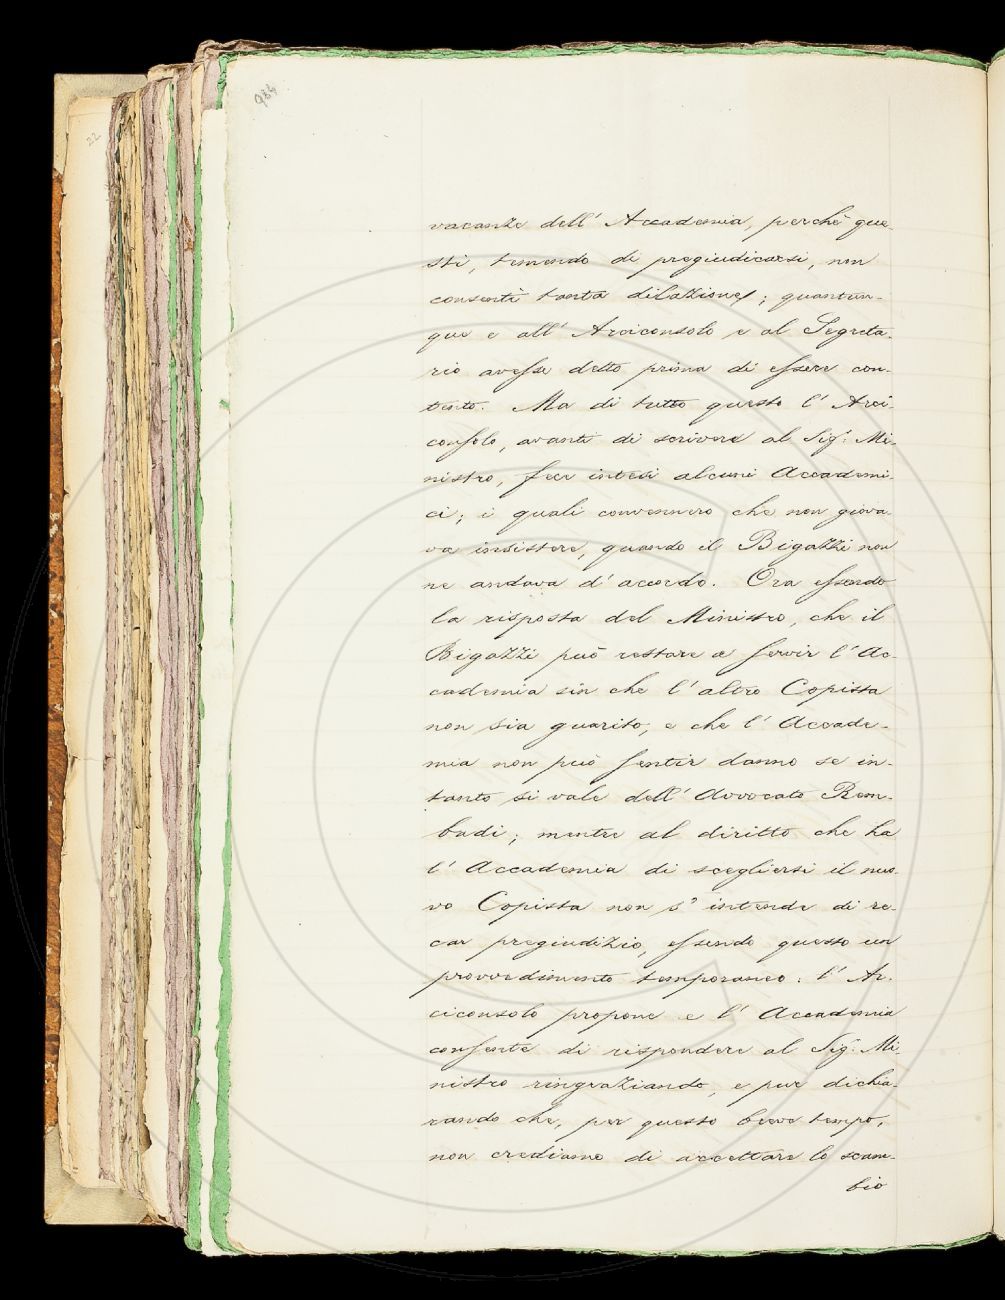 984
22
vacanze dell' Accademia, perchè que
sti, temendo di pregiudicarsi, non
consentì tanta dilazione; quantun-
que e all' Arciconsolo e al Segreta-
rio avesse detto prima di essere con-
tento. Ma di tutto questo l' Arci-
consolo, avanti di scrivere al Sig.r Mi-
nistro, fece intesi alcuni Accademi-
ci; i quali convennero che non giova
va insistere, quando il Bigazzi non
ne andava d' accordo. Ora essendo
la risposta del Ministro, che il
Bigazzi può restare a servir l' Ac-
cademia sin che l' altro Copista
non sia guarito, e che l' Accade-
mia non può sentir danno se in-
tanto si vale dell' Avvocato Bem-
badi; mentre al diritto che ha
l' Accademia di scegliersi il nuo-
vo Copista non s' intende di re-
car pregiudizio, essendo questo un
provvedimento temporaneo: l' Ar-
ciconsolo propone e l' Accademia
consente di rispondere al Sig.r Mi-
nistro ringraziando, e pur dichia-
rando che, per questo breve tempo,
non crediamo di accettare lo scam-
bio